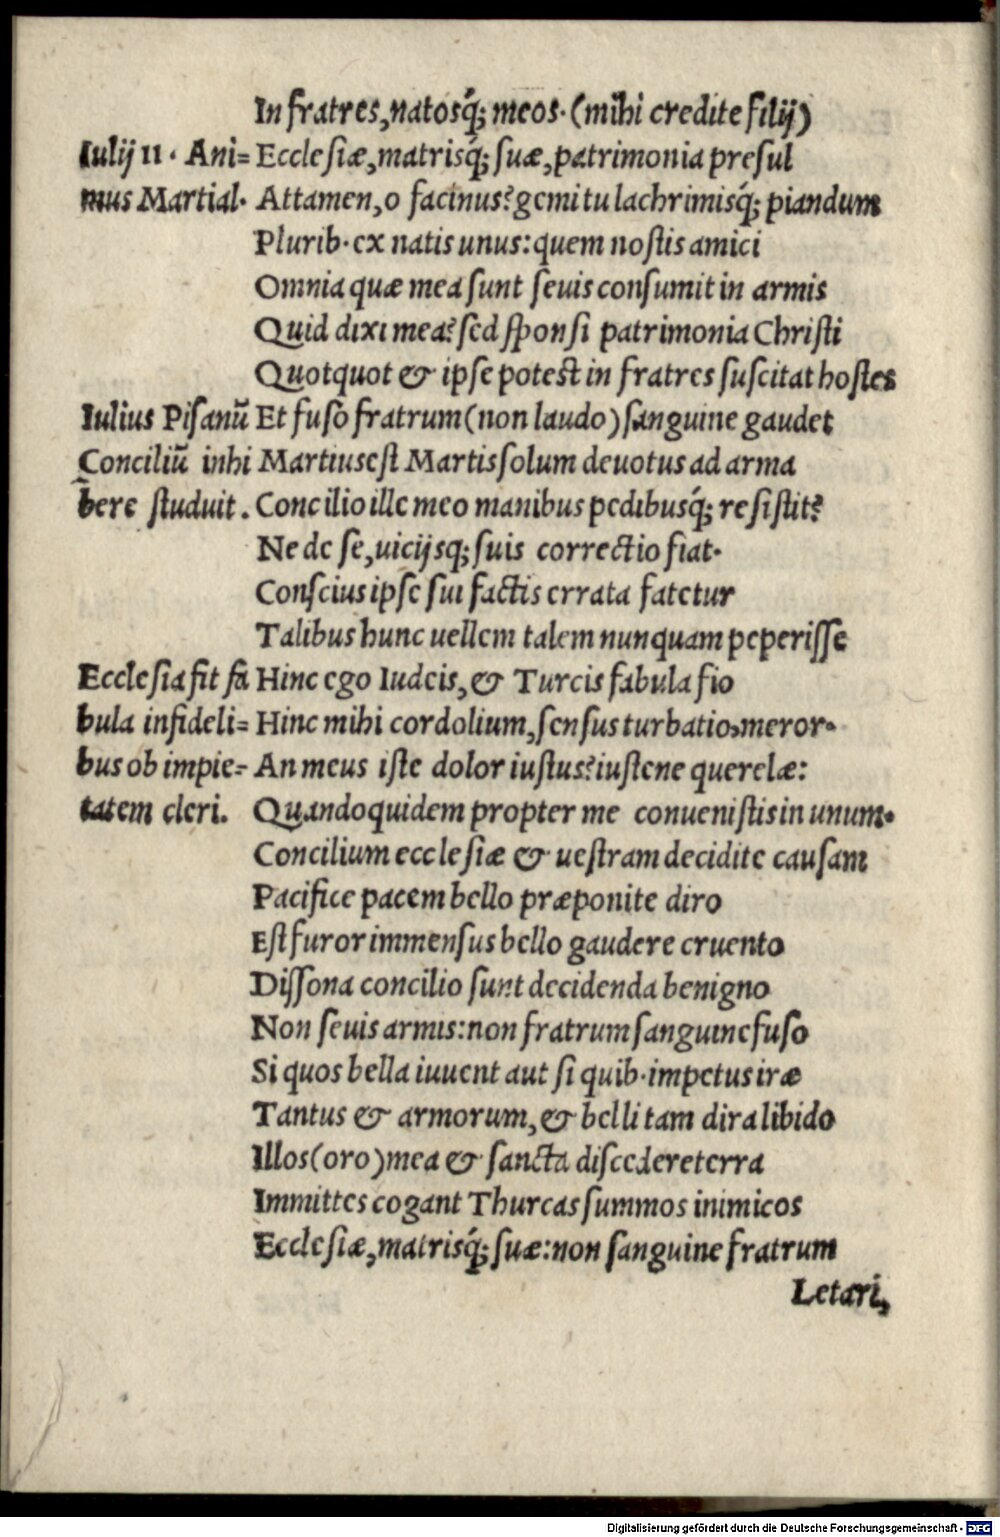 In fratres, natosq́; meos. (mihi credite filij)
Iulij II. Ani=
mus Martial.
Ecclesiæ, matrisq́; suæ, patrimonia presul
Attamen, o facinus? gemitu lachrimisq́; piandum
Plurib. ex natis unus: quem nostis amici
Omnia quæ mea sunt seuis consumit in armis
Quid dixi mea? sed sponsi patrimonia Christi
Quotquot & ipse potest in fratres suscitat hostes
Iulius Pisanū
Conciliū inhi
bere studuit.
Et fuso fratrum (non laudo) sanguine gaudet
Martius est Martis solum deuotus ad arma
Concilio ille meo manibus pedibusq́; resistit?
Ne de se, uicijsq; suis correctio fiat.
Conscius ipse sui factis errata fatetur
Talibus hunc uellem talem nunquam peperisse
Ecclesia fit fa
bula infideli=
bus ob impie=
tatem cleri.
Hinc ego Iudeis, & Turcis fabula fio
Hinc mihi cordolium, sensus turbatio, meror.
An meus iste dolor iustus? iustene querelæ:
Quandoquidem propter me conuenistis in unum.
Concilium ecclesiæ & uestram decidite causam
Pacifice pacem bello præponite diro
Est furor immensus bello gaudere cruento
Dissona concilio sunt decidenda benigno
Non seuis armis: non fratrum sanguine fuso
Si quos bella iuuent aut si quib. impetus iræ
Tantus & armorum, & belli tam dira libido
Illos (oro) mea & sancta discedere terra
Immittes cogant Thurcas summos inimicos
Ecclesiæ, matrisq́; suæ: non sanguine fratrum
Letari,
Digitalisierung gefördert durch die Deutsche Forschungsgemeinschaft - DFG